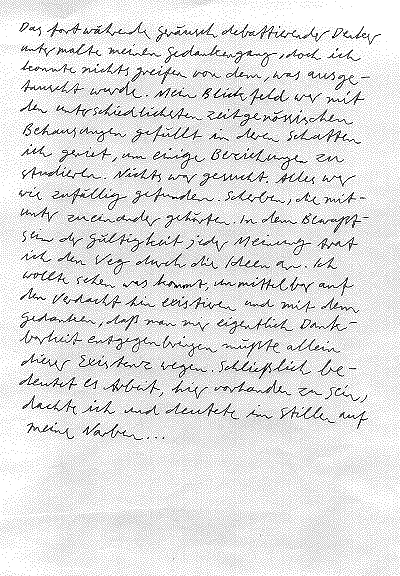 Das fortwährende Geräusch debattierender Denker
untermalte meinen Gedankengang, doch ich
konnte nichts greifen von dem, was ausge-
tauscht wurde. Mein Blickfeld war mit
den unterschiedlichsten zeitgenössischen
Behausungen gefüllt in deren Schatten
ich geriet, um einige Beziehungen zu
studieren. Nichts war gesucht. Alles war
wie zufällig gefunden. Scherben, die mit-
unter zueinander gehörten. In dem Bewußt-
sein der Gültigkeit jeder Meinung trat
ich den Weg durch die Ideen an. Ich
wollte sehen was kommt, unmittelbar auf
den Verdacht hin existieren und mit dem
Gedanken, daß man mir eigentlich Dank-
barkeit entgegenbringen müßte allein
dieser Existenz wegen. Schließlich be-
deutet es Arbeit, hier vorhanden zu sein,
dachte ich und deutete im Stillen auf
meine Narben...